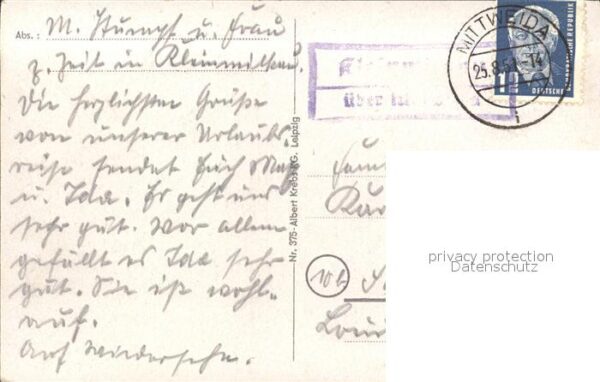 Abs.: M. Stumpf u. Frau
z. Zeit in Kleinmilkau.
Die herzlichsten Grüße
von unserer Urlaubs-
reise sendet Euch Max
u. Ida. Es geht uns
sehr gut. Vor allem
gefällt es Ida sehr
gut. Sie ist wohl-
auf.
Auf Wiedersehn.
Nr. 375-Albert Krebs KG. Leipzig
über
MITTWEIDA
25.8.51.-14
i
12
DEUTSCHE
REPUBLIK
Fam
10b
privacy protection
Datenschutz